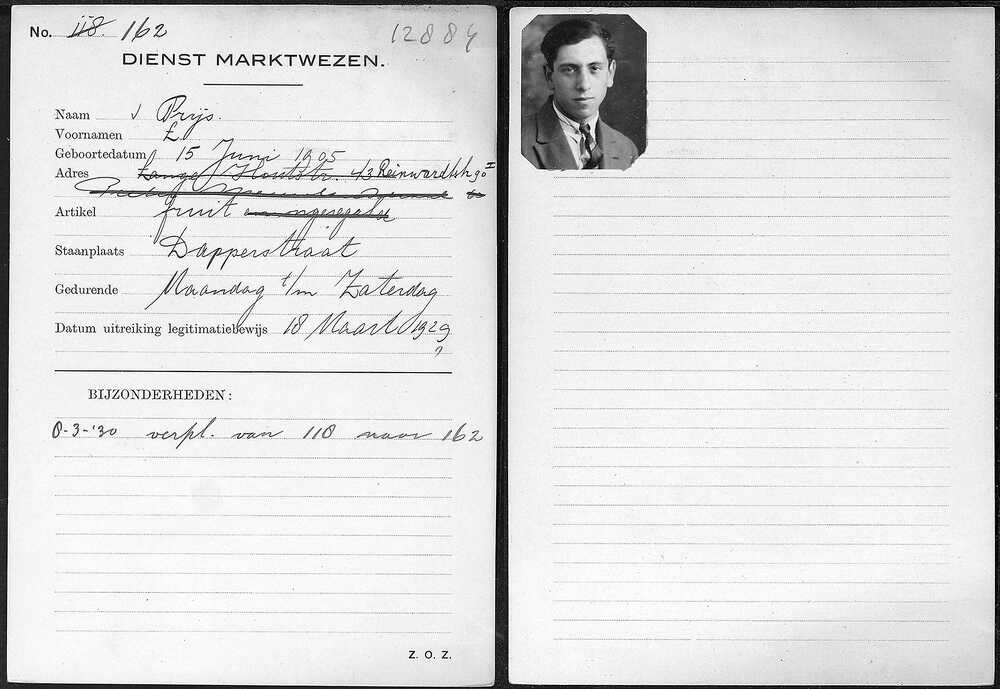 No. 118. 162 12884
DIENST MARKTWEZEN.
Naam Prijs.
Voornamen E
Geboortedatum 15 Juni 1905
Adres Lange Houtstr. 43 Reinwardtstr 90 I
Artikel fruit en ongeregeld
Staanplaats Dapperstraat
Gedurende Maandag t/m Zaterdag
Datum uitreiking legitimatiebewijs 18 Maart 1929
?
BIJZONDERHEDEN:
8-3-'30 verpl. van 118 naar 162
Z. O. Z.